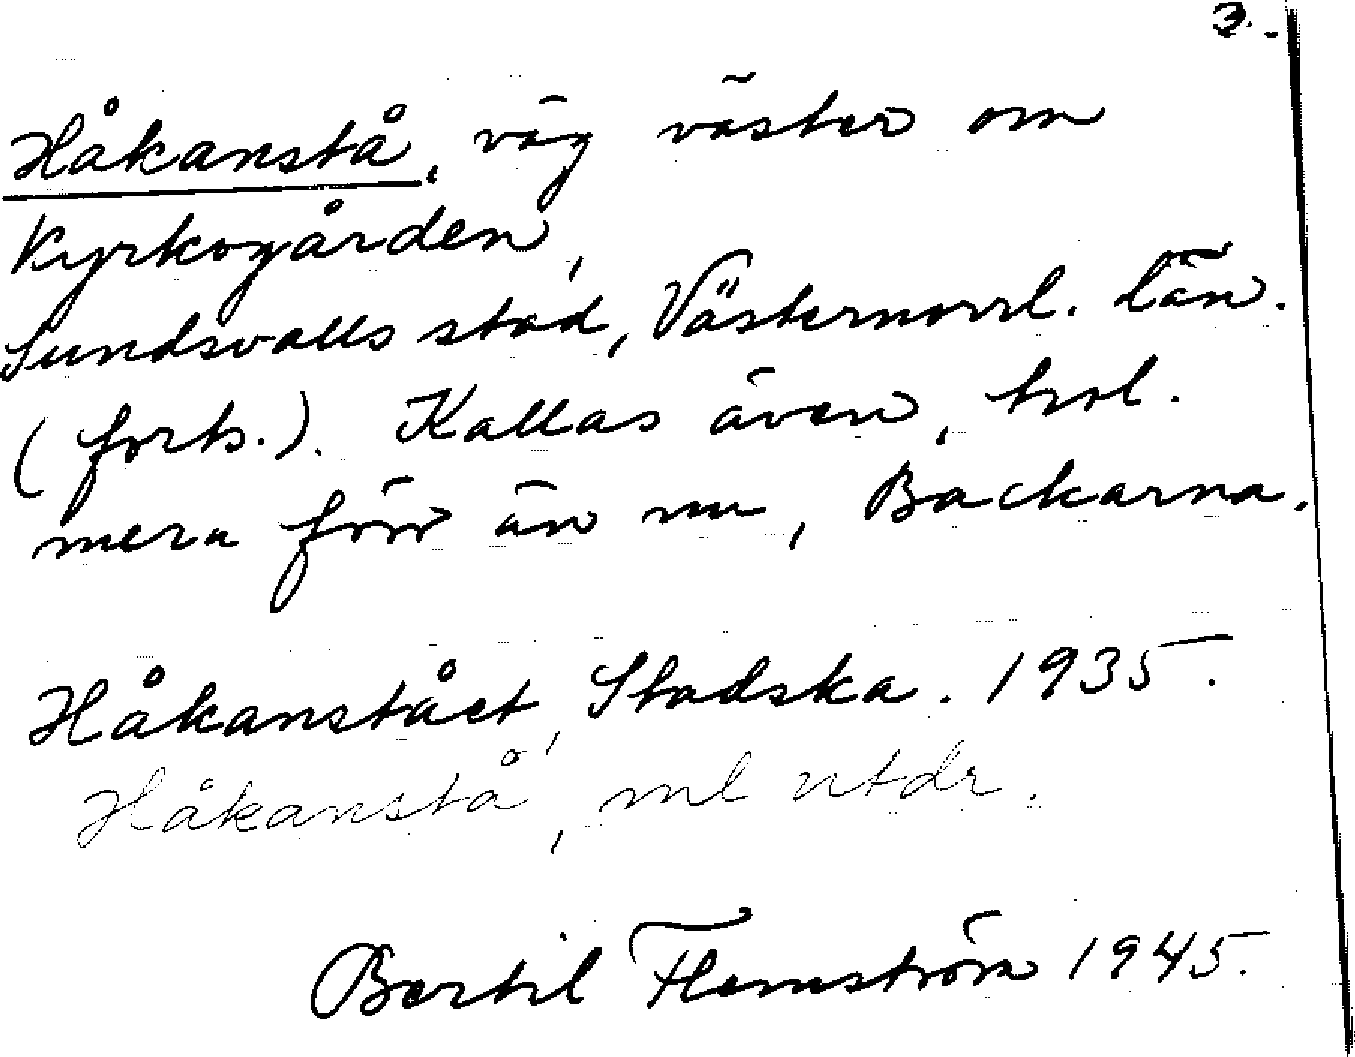 3.
Håkanstå, väg väster om
Kyrkogården,
Sundsvalls stad, Västernorrl. län.
(forts.). Kallas även, trol.
mera förr än nu, Backarna.
Håkanstået, Stadska. 1935.
Håkanstå, ml utdr.
Bertil Flemström 1945.